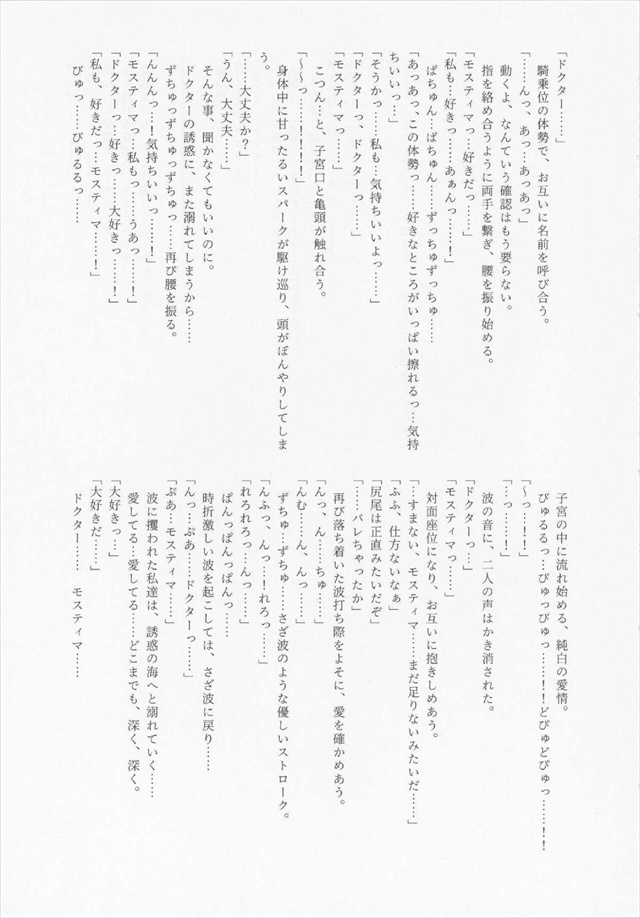 「ドクター……」
騎乗位の体勢で、お互いに名前を呼び合う。
「……んっ、あっ…あっあっ」
動くよ、なんていう確認はもう要らない。
指を絡め合うように両手を繋ぎ、腰を振り始める。
「モスティマっ…好きだっ……」
「私も…好きっ……あぁんっ……！」
ぱちゅん…ぱちゅん……ずっちゅずっちゅ……
「あっあっ、この体勢っ……好きなところがいっぱい擦れるっ…気持
ちいいっ…」
「そうかっ……私も…気持ちいいよっ……」
「ドクターっ、ドクターっ……」
「モスティマっ……」
こつん…と、子宮口と亀頭が触れ合う。
「～～っ…！！！！」
身体中に甘ったるいスパークが駆け巡り、頭がぼんやりしてしま
う。
「……大丈夫か？」
「うん、大丈夫……」
そんな事、聞かなくてもいいのに。
ドクターの誘惑に、また溺れてしまうから……
ずちゅっずちゅっずちゅっ……再び腰を振る。
「んんんっ…！気持ちいいっ……！」
「モスティマっ…私もっ……うあっ……！」
「ドクターっ…好きっ……大好きっ……！」
「私も、好きだっ…モスティマ……！」
びゅっ……びゅるるっ……
子宮の中に流れ始める、純白の愛情。
びゅるるっ…びゅっびゅっ……！！どぴゅどぴゅっ……！！
「～っ…！！」
「…っ……！」
波の音に、二人の声はかき消された。
「ドクターっ…」
「モスティマっ……」
対面座位になり、お互いに抱きしめあう。
「…すまない、モスティマ……まだ足りないみたいだ……」
「ふふ、仕方ないなぁ」
「尻尾は正直みたいだぞ」
「……バレちゃったか」
再び落ち着いた波打ち際をよそに、愛を確かめあう。
「んっ、ん……ちゅ……」
「んむ……ん、んっ……」
ずちゅ…ずちゅ……さざ波のような優しいストローク。
「んふっ、んっ…！れろっ……」
「れろれろっ…んっ……」
ぱんっぱんっぱんっ……
時折激しい波を起こしては、さざ波に戻り……
「んっ…ぷあ……ドクターっ……」
「ぷあ…モスティマ……」
波に攫われた私達は、誘惑の海へと溺れていく……
愛してる…愛してる……どこまでも、深く、深く。
「大好きっ…」
「大好きだ……」
ドクター……　モスティマ……